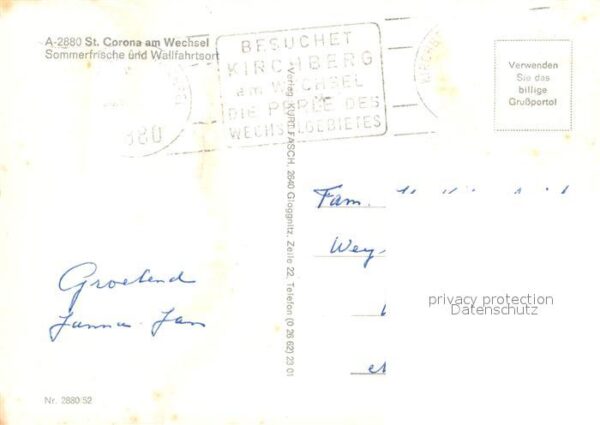 A-2880 St. Corona am Wechsel
Sommerfrische und Wallfahrtsort
BESUCHET
KIRCHBERG
am WECHSEL
DIE PERLE DES
WECHSELGEBIETES
880
Verwenden
Sie das
billige
Grußporto!
Verlag KURT FASCH, 2640 Gloggnitz, Zeile 22, Telefon (0 26 62) 23 01
Fam.
Wey
Groetend
Jannus-Jan
privacy protection
Datenschutz
Nr. 2880 52